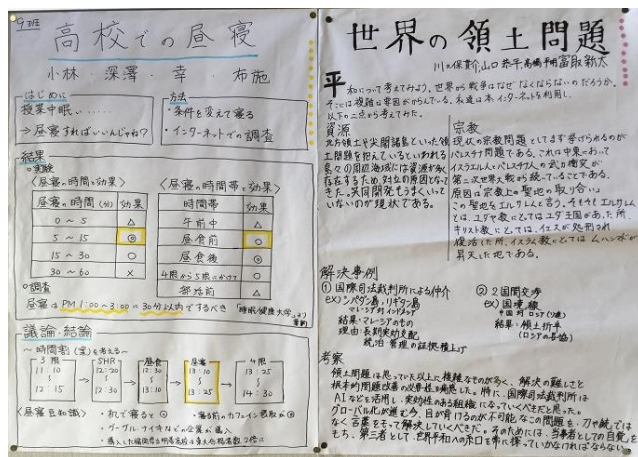 9班
高校での昼寝
小林・深澤・幸・布施
はじめに
授業中眠い……
⇒昼寝すればいいんじゃね?
方法
・条件を変えて寝る
・インターネットでの調査
結果
○実験
〈昼寝の時間と効果〉
昼寝の時間(分) 効果
0~5 △
5~15 ◎
15~30 ○
30~60 ×
〈昼寝の時間帯と効果〉
時間帯 効果
午前中 △
昼食前 ○
昼食後 ◎
4限から5限にかけて ○
部活前 △
○調査
昼寝はPM 1:00~3:00に30分以内でするべき
議論・結論
~時間割(案)を考える~
3限
11:10
~
12:15
SHR
12:20
~
12:30
昼食
12:30
~
13:10
昼寝
13:10
~
13:25
4限
13:25
~
14:30
〈昼寝豆知識〉
・机で寝ると◎
・寝る前のカフェイン摂取が◎
・グーグル・ナイキなどの企業が導入
世界の領土問題
平和について考えてみよう。世界から戦争はなぜなくならないのだろうか。
そこには複雑な要因がからんでいる。私達は本、インターネットを利用し、
以下の二点から考えてみた。
資源
北方領土や尖閣諸島といった領
土問題を抱えているといわれる
島々の周辺海域には資源が多く
存在するため、対立の原因となって
きた。共同開発もうまくいって
いないのが現状である。
宗教
現代の宗教問題としてまず挙げられるのが
パレスチナ問題である。これは中東において
イスラエル人とパレスチナ人の武力衝突が
第二次世界大戦から続いていることである。
原因は宗教上の聖地の取り合い。
この聖地をエルサレムと言う。そもそもエルサレム
とは、ユダヤ教にとってはユダ王国があった所、
キリスト教にとっては、イエスが処刑され
復活した所、イスラム教にとってはムハンマドが
昇天した地である。
解決事例
① 国際司法裁判所による仲介
ex) シパダン島・リギタン島
マレーシア対インドネシア
結果:マレーシアのもの
理由:長期実効支配
統治・管理の証拠
② 2国間交渉
ex) 国境線
中国対ロシア(ソ連)
結果:領土折半
(ロシアの妥協)
考察
領土問題は思っていた以上に複雑なものが多く、解決の難しさと
根本的問題改善の必要性を痛感した。特に、国際司法裁判所は
AIなどを活用し、実効性のある組織になっていくべきだと思った。
グローバル化が進む今、目を背けるのが不可能なこの問題を、刀や銃では
なく言葉をもって解決していくべきだ。そのためには、当事者としての自覚を
もち、第三者として、世界平和への糸口を常に探っていかなければならない。